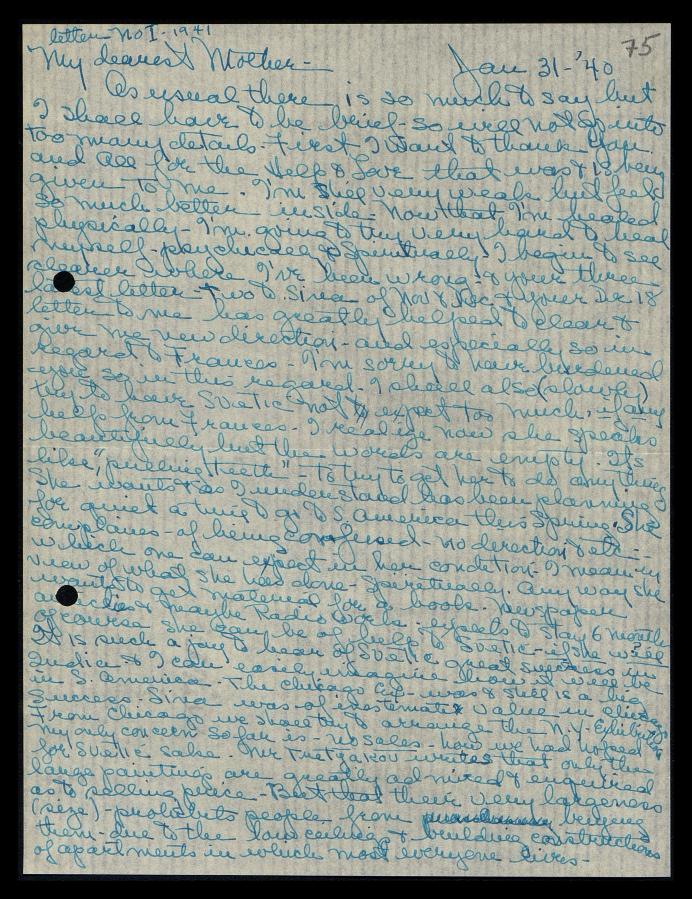 letter No I - 1941
75
My dearest Mother - Jan 31 - '40
As usual there is so much to say but
I shall have to be brief - so will not go into
too many details. First I want to thank you
and all for the Help & Love that was & is being
given to me. I'm still very weak but feel
so much better inside. Now that I'm healed
physically - I'm going to try very hard to heal
myself - psychically & Spiritually. I begin to see
clearer where I've been wrong & your three
last letters two to Sina of Nov & Dec & your De 18
letter to me has greatly helped to clear &
give me new direction - and especially so in
regard to Frances - I'm sorry to have burdened
you so in this regard. I shall also (slowly)
try to have Svetic not to expect too much, if any
help from Frances - I realize now she speaks
beautifully but the words are empty. Its
like "pulling teeth" - to try to get her to do anything
She wants & as I understand has been planning
for quiet a time to go to S. America this Spring. She
complaines - of being confused - no direction & etc -
which one can expect in her condition - I mean in
view of what she has done - Spiritually. Any way she
wants to get material for a book. Newspaper
articles & maybe Radio works. expects to stay 6 months
of course she can be of help to Svetic - if she will
It is such a joy to hear of Svetic great success in
India & I can easily imagine how it will be
in S. America. The Chicago Ex - was & still is a big
success. Sina was of inestimate value in Chicago
From Chicago we shall try to arrange the N.Y. Exhibition
My only concern so far is - no sales - how we had hoped
for Svetic sake. Mr Tretjakov writes that only the
large paintings are greatly admired & enquired
as to selling price - But that their very largeness
(size) - prohibits people from bringing
them - due to the low ceiling & building constructions
of apartments in which most everyone lives -